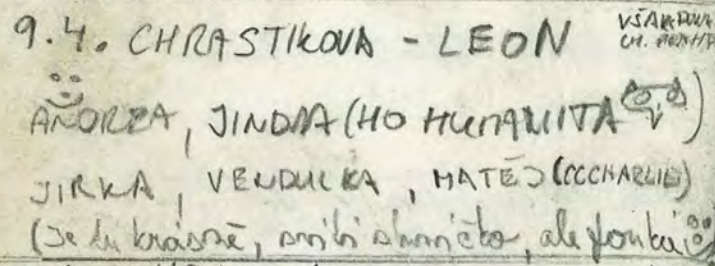 9.4. CHRASTIKOVA - LEON
ANDREA, JINDRA (HO HUMANITA)
JIRKA, VENDULKA, MATĚJ (CCCHARLIE)
(Je tu krásně, svítí sluníčko, ale fouká